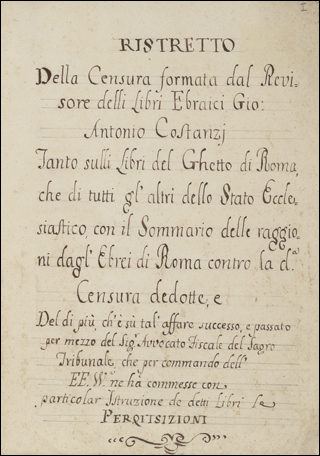 I
RISTRETTO
Della Censura formata dal Revi=
sore delli Libri Ebraici Gio:
Antonio Costanzj
Tanto sulli Libri del Ghetto di Roma,
che di tutti gl' altri dello Stato Eccle,
siastico, con il Sommario delle raggio,
ni dagl' Ebrei di Roma contro la dª
Censura dedotte, e
Del di più, ch' è sù tal' affare successo, e passato
per mezzo del Sigʳ Avvocato Fiscale del Sagro
Tribunale, che per commando dell'
EE. VV. ne hà commesse con
particolar Istruzione de detti Libri le
PERQUISIZIONI